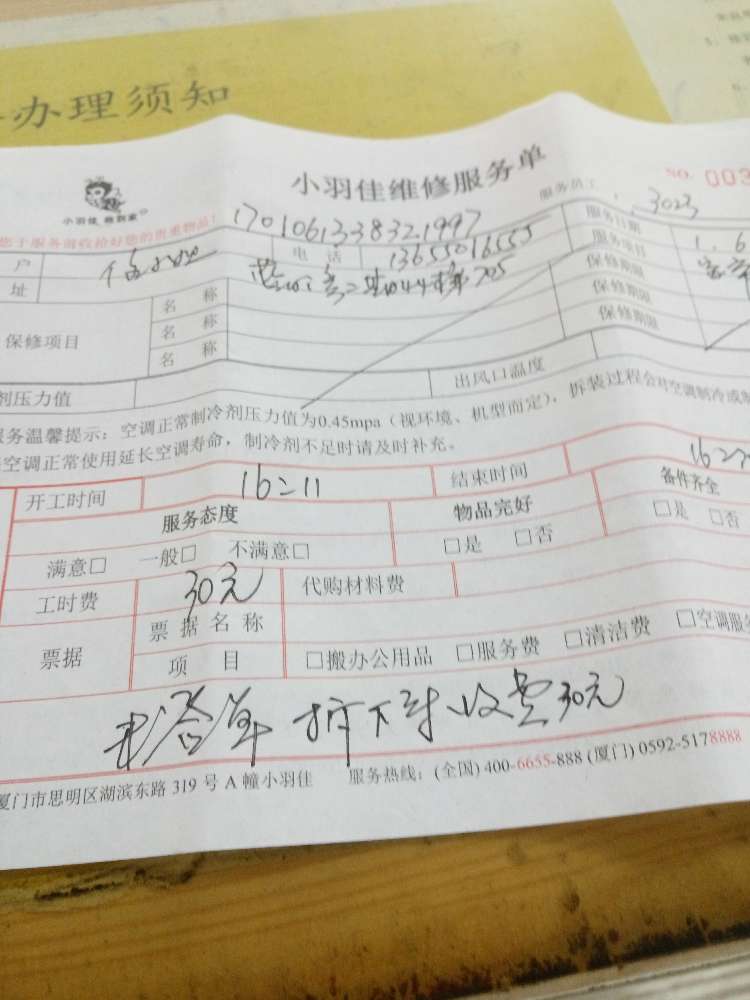 办理须知
小羽佳维修服务单
NO. 003
小羽佳
您于服务前收拾好您的贵重物品!
1701061338321997
服务员工 3023
户
电 话 13655016555
服务日期 1.6
址
705
服务项目
保修项目
名 称
保修期限
名 称
保修期限
名 称
保修期限
剂压力值
出风口温度
服务温馨提示:空调正常制冷剂压力值为0.45mpa(视环境、机型而定),拆装过程会对空调制冷或制
空调正常使用延长空调寿命,制冷剂不足时请及时补充。
开工时间 16:11 结束时间 16:
服务态度 物品完好 备件齐全
满意□ 一般□ 不满意□ □是 □否 □是 □否
工时费 30元 代购材料费
票据 票据名称
项 目 □搬办公用品 □服务费 □清洁费 □空调服务
单 拆下 收费30元
厦门市思明区湖滨东路 319 号 A 幢小羽佳 服务热线:(全国) 400-6655-888 (厦门) 0592-5178888